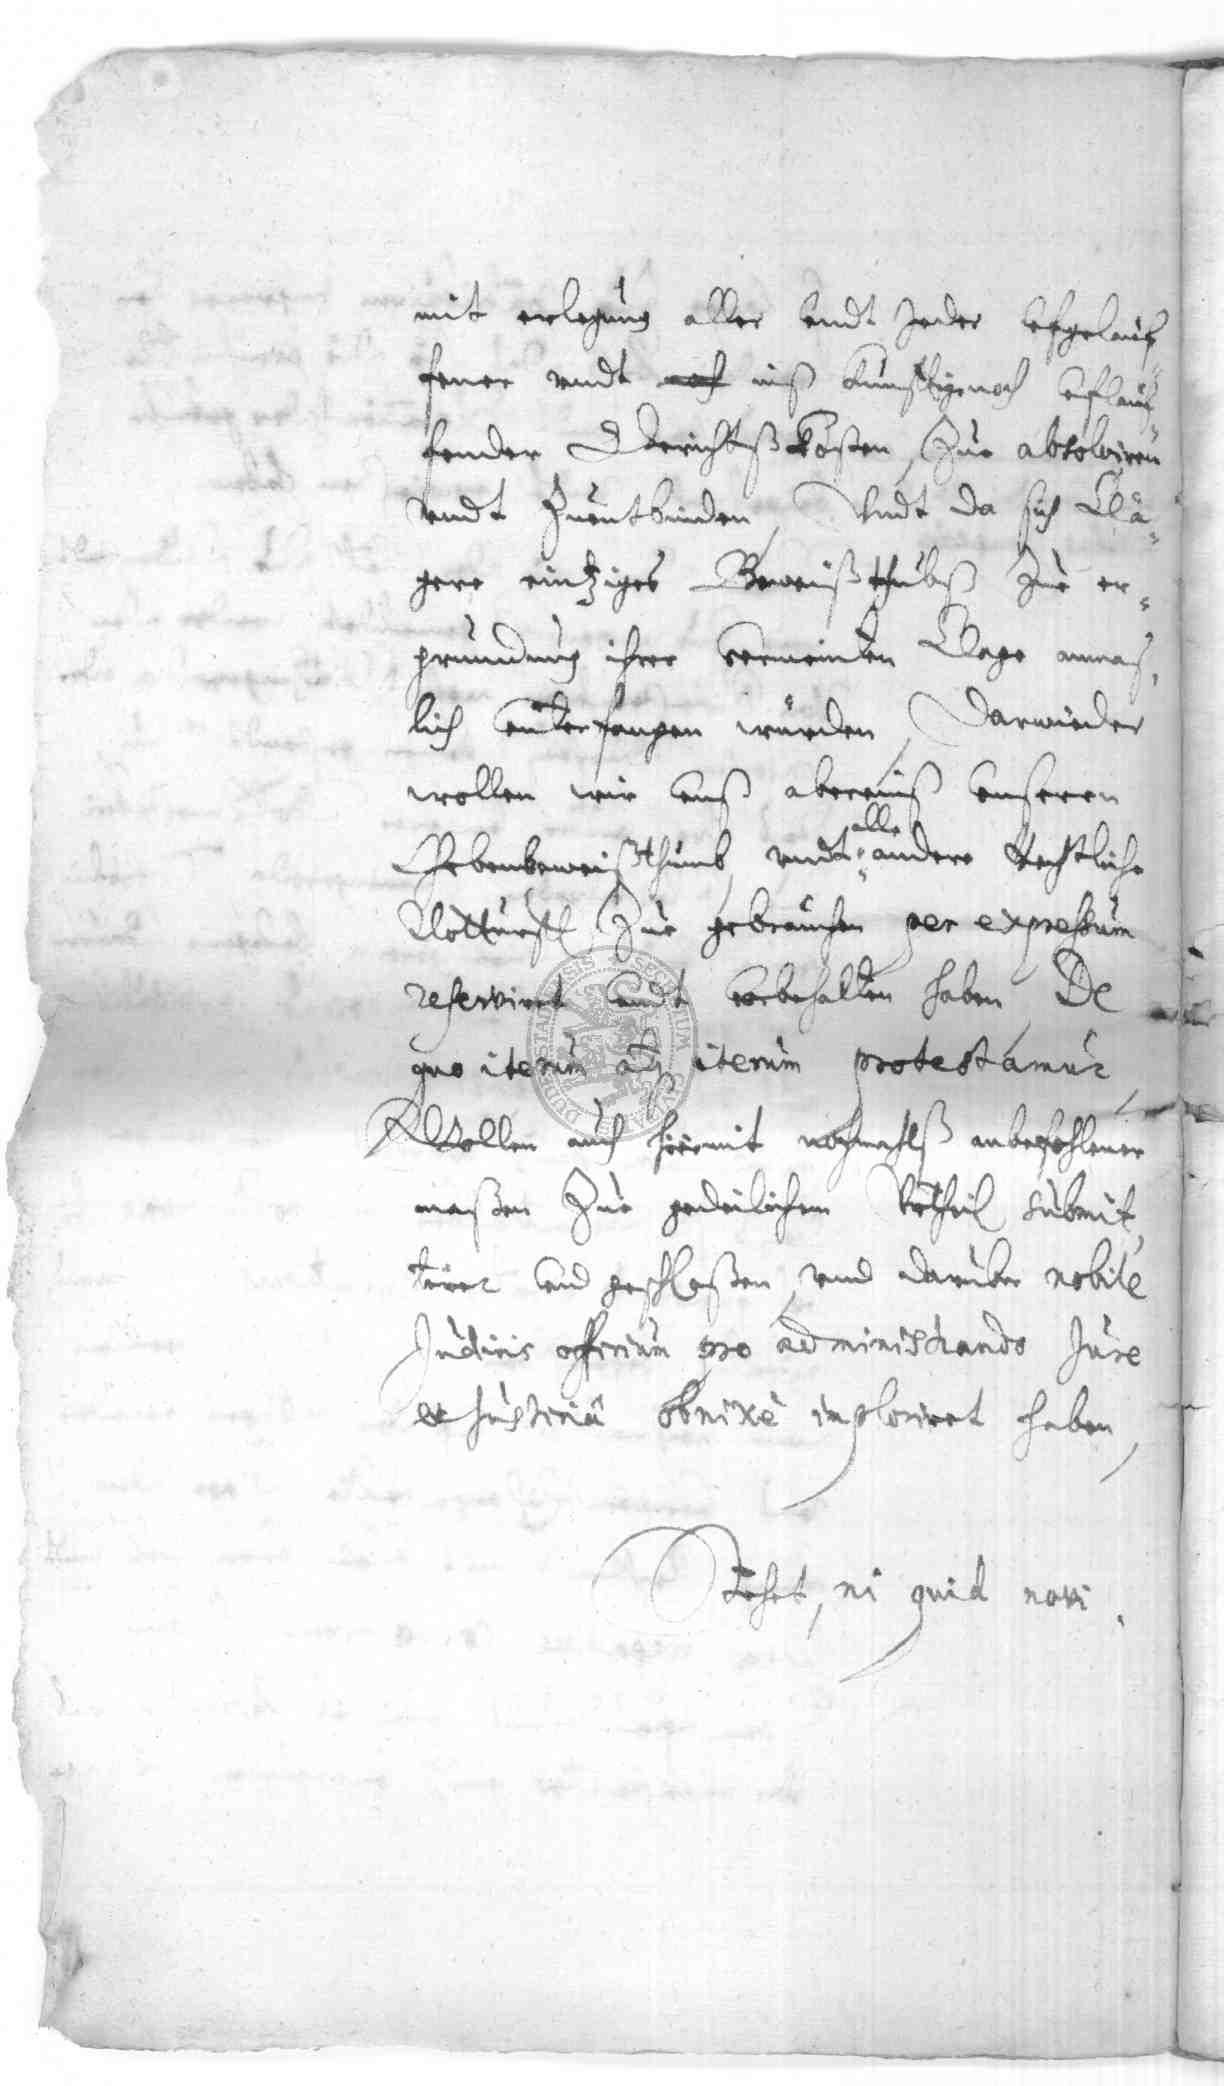 mit erlegung aller undt jeder ufgelauf
fener undt noch inß künfftige noch uflauf
fender Gerichtßkosten, Zue absolviren
undt Zuentbinden, Undt da sich Clä-
gere eintziges Beweißthubß Zue er-
gründung ihrer vermeinden Clage annaß,
lich unterfangen würden, Darwieder
wollen wir unß abereinß unseren
Gebenbeweißthumb, undt alle andere Rechtliche
Notturfft Zue gebrauchen per expressum
reserviret undt vorbehalten haben, De
quo iterum atq iterum protestamur
Wollen auch hiermit nochmahlß anbefohlener
maßen Zue gedeilichem Urtheil submit,
tiret und geschloßen, und darüber nobile
Judicis officium pro administrando Jure
et Justicia obnixe imploriret haben,
Stehet, ni quid novi.
SECRETUM CIVITATIS